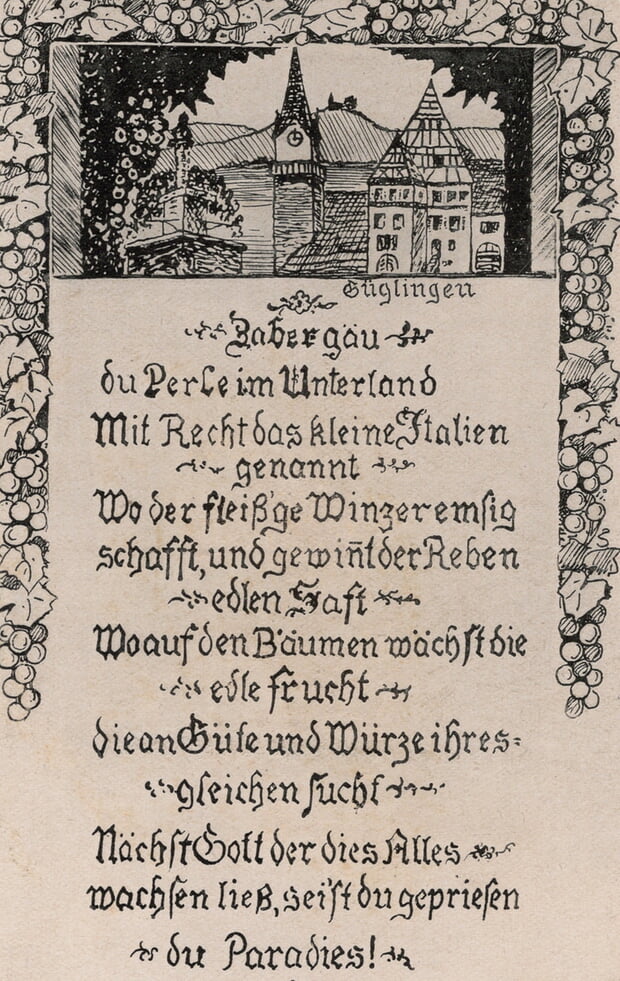 Güglingen
Zabergäu
du Perle im Unterland
Mit Recht das kleine Italien
genannt
Wo der fleiß'ge Winzer emsig
schafft, und gewiñt der Reben
edlen Saft
Wo auf den Bäumen wächst die
edle frucht
die an Güte und Würze ihres=
gleichen sucht
Nächst Gott der dies Alles
wachsen ließ, sei'st du gepriesen
du Paradies!